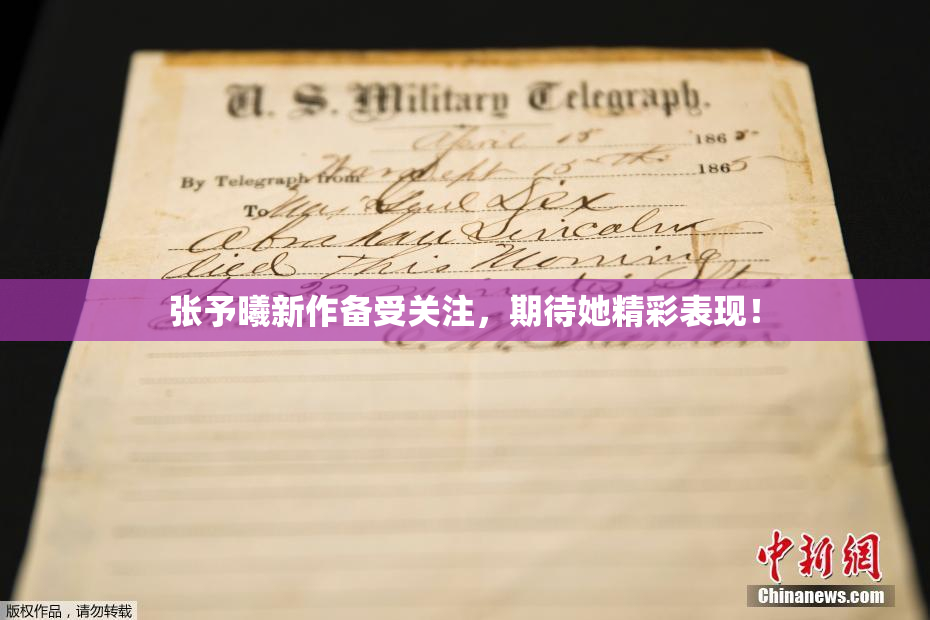 U. S. Military Telegraph.
April 15 1865
By Telegraph from War Dept 15th 1865
To Maj Genl Dix
Abraham Lincoln
died This Morning
at 22 minutes after
张予曦新作备受关注，期待她精彩表现！
Stanton
中新网
Chinanews.com
版权作品，请勿转载